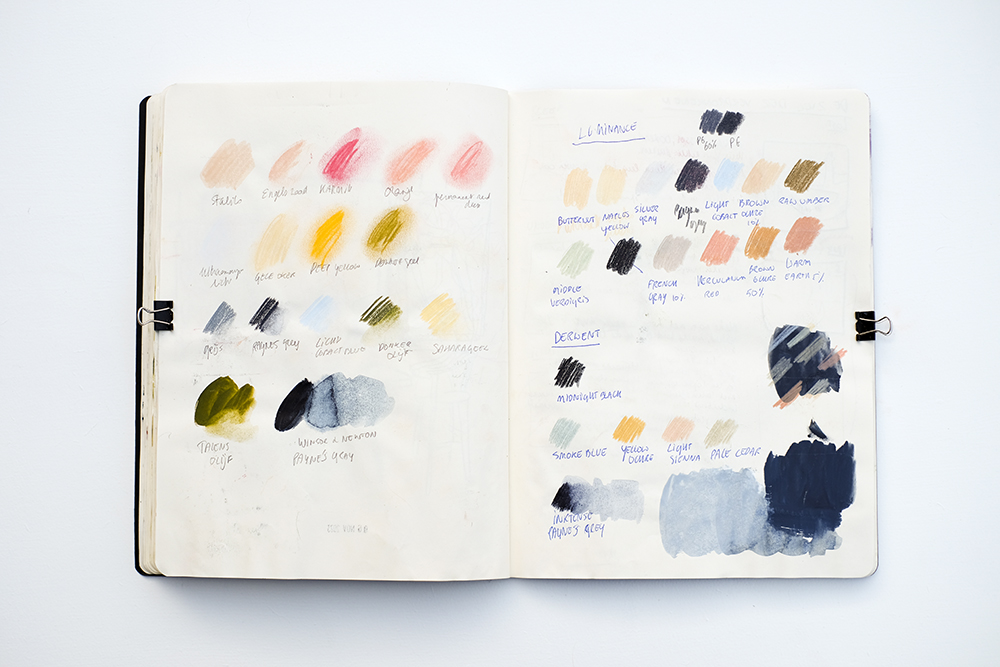 Engels rood
KARMIJN
Oranje
permanent red
GOUD OKER
DEEP YELLOW
GRIJS
PAYNE'S GREY
LIGHT
COBALT BLUE
DONKER
OLIJF
SAHARAGEEL
TALENS
OLIJF
WINSOR & NEWTON
PAYNE'S GRAY
LUMINANCE
PG
60%
PG
BUTTERCUT
NAPLES
YELLOW
SILVER
GRAY
Payne's
grey
LIGHT
COBALT
BROWN
OCHRE
10%
RAW UMBER
MIDDLE
VERDIGRIS
FRENCH
GRAY 10%
VERCULANUM
RED
BROWN
OCHRE
50%
WARM
EARTH 5%
DERWENT
MIDNIGHT BLACK
SMOKE BLUE
YELLOW
OCHRE
LIGHT
SIENNA
PALE CEDAR
INKTENSE
PAYNE'S GREY